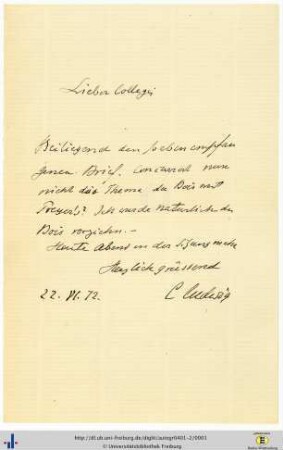 Lieber College
Beiliegend den soeben empfan
genen Brief. Concurrirt nun
nicht das Thema du Bois mit
Freyer's? Ich würde natürlich du
Bois vorziehen.–
Heute Abend in der Sitzung mehr
Herzlich grüssend
22. VI. 72. C Ludwig
http://dl.ub.uni-freiburg.de/diglit/autogr0401-2/0001
© Universitätsbibliothek Freiburg